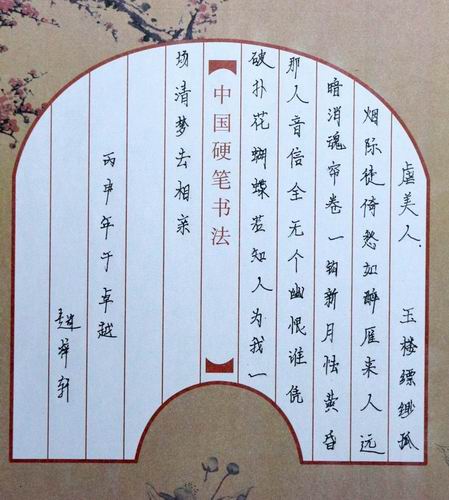 虞美人. 玉楼缥缈孤
烟际徒倚愁如醉雁来人远
暗消魂帘卷一钩新月怯黄昏
那人音信全无个幽恨谁凭
破扑花蝴蝶若知人为我一
【中国硬笔书法】
场清梦去相亲
丙申年于卓越
趙 轩